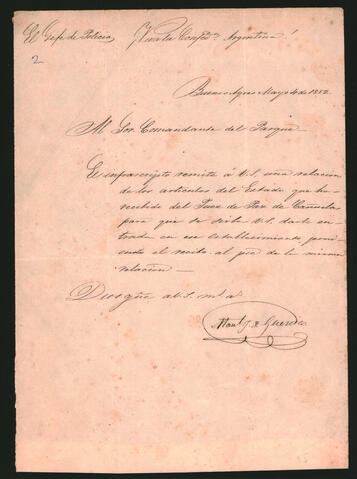 El Gefe de Policia
¡Viva la Confed.n Argentina!
2
Buenos Ayres Mayo 4 de 1852
Al Sor. Comandante del Parque
El infrascripto remite á V.S. una relacion
de los articulos del Estado que ha
recibido del Juez de Paz de Cañuelas
para que se sirba V.S. darle en-
trada en ese establecimiento, poni-
endo el recibo al pie de la misma
relacion —
Dios gũe a V.S. m.s a.s
Man.l J. de Guerrico